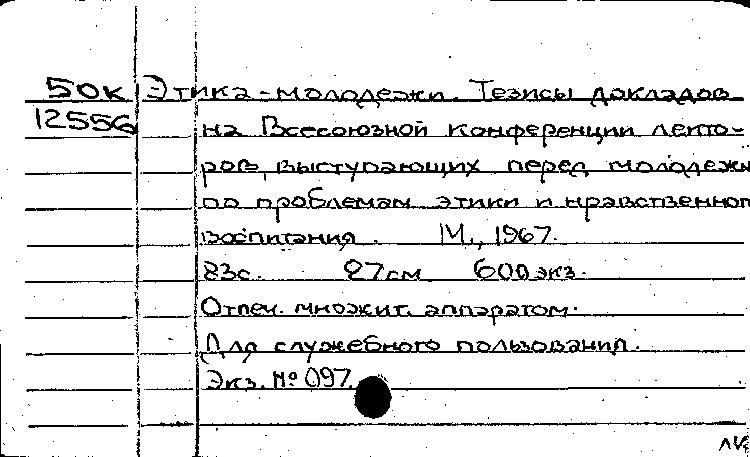 50к Этика - молодежи. Тезисы докладов
12556 на Всесоюзной конференции лекто-
ров, выступающих перед молодежь
по проблемам этики и нравственног
воспитания. М., 1967.
83с. 27см 600 экз.
Отпеч. множит. аппаратом.
Для служебного пользования.
Экз. № 097.